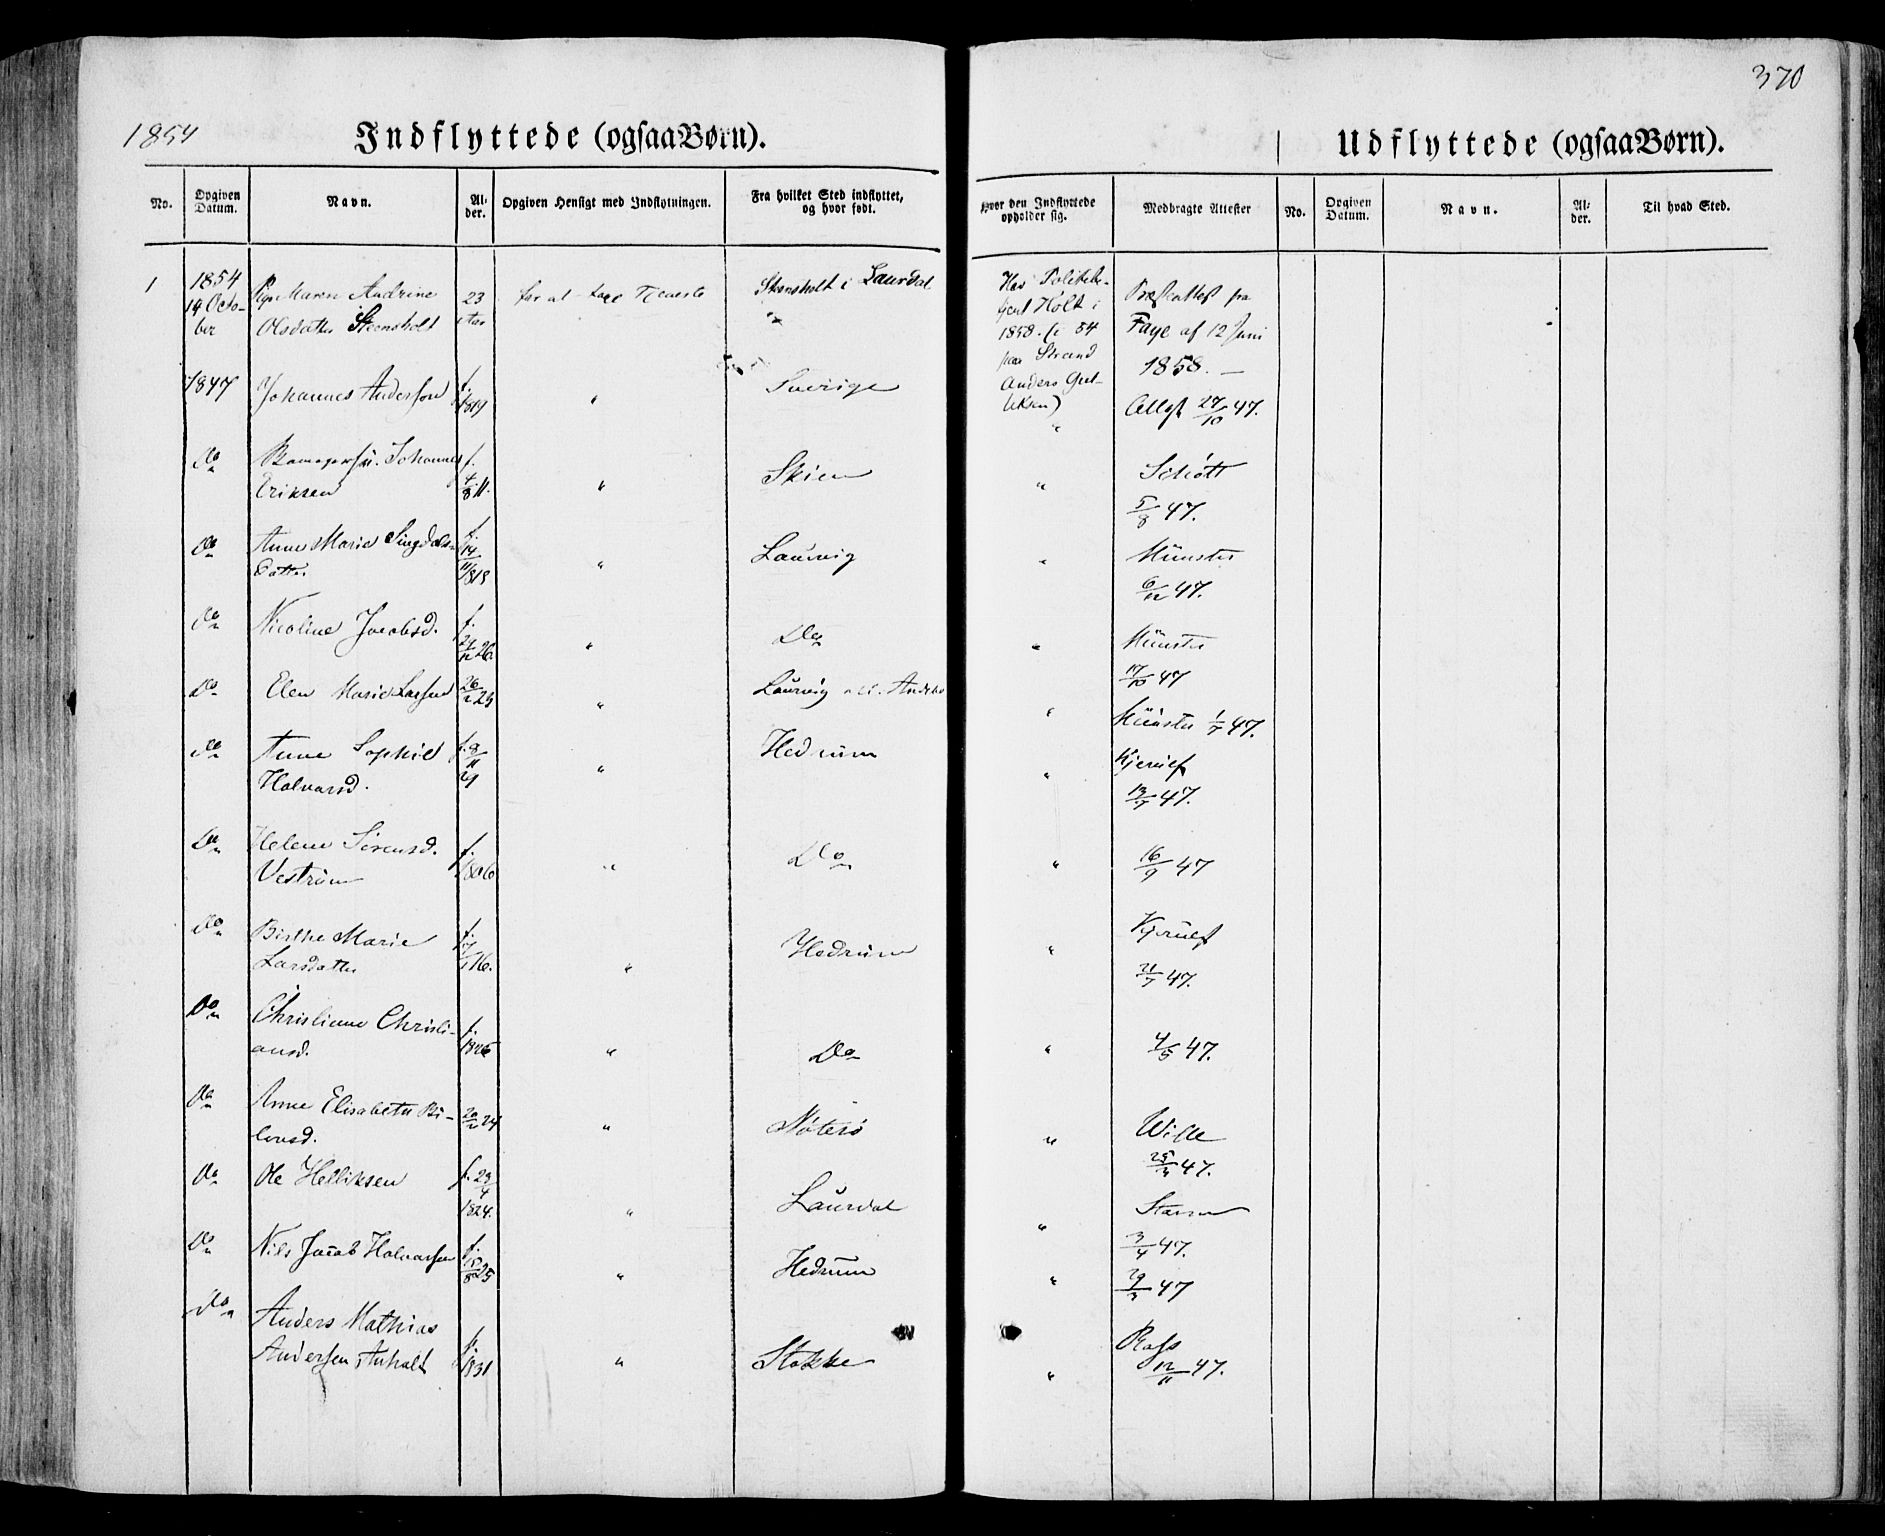 370
1854
Indflyttede (ogsaa Børn).
Udflyttede (ogsaa Børn).
No.
Opgiven Datum.
Navn.
Alder.
Opgiven Hensigt med Indflytningen.
Fra hvilket Sted indflyttet, og hvor født.
Hvor den Indflyttede opholder sig.
Medbragte Attester
No.
Opgiven Datum.
Navn.
Alder.
Til hvad Sted.
1 1854 Pige Maren Andrine 23 for at tage Tjeneste Steensholt i Laurdal
19 Octo- Olsdatter Steensholt
ber
Holt i
1858. 54
paa Strand
Anders
Præsteattest fra
Faye af 12 Juni
1858. —
1847 Johannes Anderssen f. 1819 " Sverige " 27/10 47.
Do Johannes
Eriksen f. 4/8 11. " Skien " Schøtt
5/8 47.
Do Anne Marie
datter f. 14/11 1818 " Laurvig " Münster
6/12 47.
Do Nicoline Jacobsd. f. 26. " Do " Münster
17/10 47
Do Elen Marie Larsen 23 " Laurvig " Münster 1/7 47.
Do Anne Sophie f. 8/11
Halvorsd. 29 " Hedrum " Kjerulf
13/7 47.
Do Helene Sørensd.
Vestrum f. 1806 " Do " 16/9 47
Do Birthe Marie
Larsdatter f. 16. " Hedrum " Kjerulf
21/7 47.
Do Christiane Christi-
ansd. f. 1826 " Do " 4/5 47.
Do Anne Elisabeth
24 " Nøterø " Wille
25/3 47.
Do Ole Helliksen f. 23/4
1824. " Laurdal "
3/4 47.
Do Nils Jacob Halvorsen f. 15/8 25 " Hedrum " 29/3 47
Do Anders Mathias
Andersen Anholt f. 1831 " Stokke " Rafs
12/11 47.